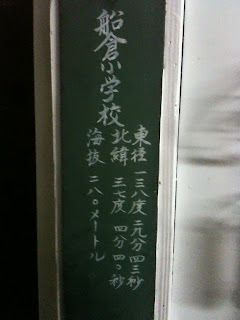 船倉小学校
東径 一三八度 二九分 四三秒
北緯 三七度 四分 四〇秒
海抜 二八〇メートル